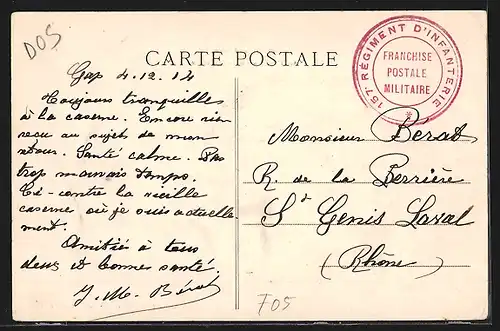 DOS
CARTE POSTALE
157e RÉGIMENT D'INFANTERIE
FRANCHISE
POSTALE
MILITAIRE
Gap 4.12.14
Toujours tranquilles
à la caserne. Encore rien
reçu au sujet de mon
retour. Santé calme. Pas
trop mauvais temps.
Ci-contre la vieille
caserne où je suis actuelle
ment.
Amitié à tous
deux et bonne santé.
J. M. Bérat
Monsieur Bérat
R. de la Perrière
St Genis Laval
(Rhône)
F05